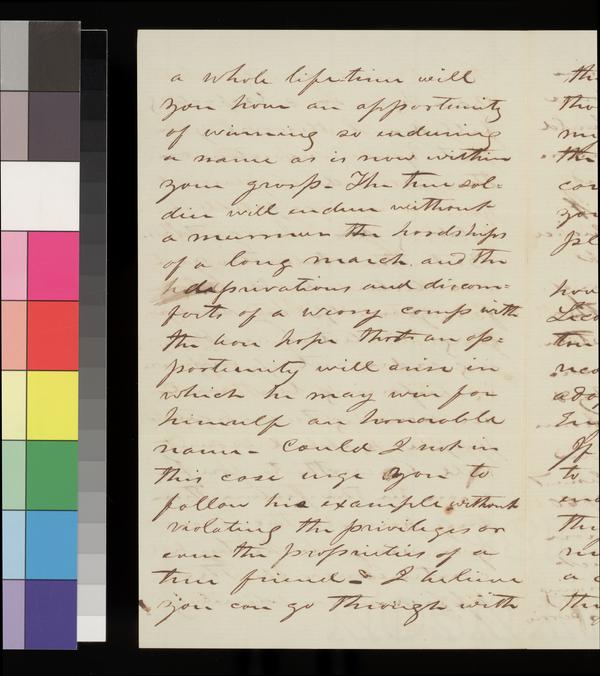 a whole lifetime will
you have an opportunity
of winning so enduring
a name as is now within
your grasp - The true sol-
dier will endure without
a murmur the hardships
of a long march and the
deprivations and discom-
forts of a weary camp with
the one hope that an op-
portunity will arise in
which he may win for
himself an honorable
name - Could I not in
this case urge you to
follow his example without
violating the privileges or
even the proprieties of a
true friend - I believe
you can go through with